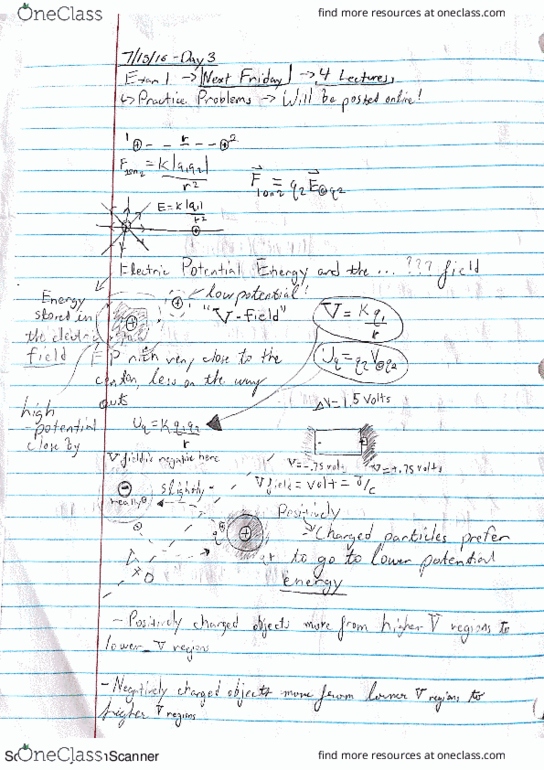 OneClass
find more resources at oneclass.com
7/15/16 - Day 3
Exam 1 → Next Friday → 4 Lectures
↳ Practice Problems → Will be posted online!
1 ⊕ - - r - - ⊕ 2
F1on2 = K|q1q2| / r²
F1on2 = q2 E@q2
E = K|q1| / r²
Electric Potential Energy and the ... ??? field
low potential!
"V-field"
Energy
stored in
the electric
field
V = K q1 / r
Uq = q2 V@q2
E P rich very close to the
center, less on the way
out
high
potential
close by
Uq = K q1q2 / r
ΔV = 1.5 volts
V field is negative here
V = -.75 volts
V = +.75 volts
V field = volt = J/C
really
slightly
Positively
Charged particles prefer
to go to lower potential
energy
- Positively charged objects move from higher V regions to
lower V regions
- Negatively charged objects move from lower V regions to
higher V regions
OneClass
Scanner
find more resources at oneclass.com